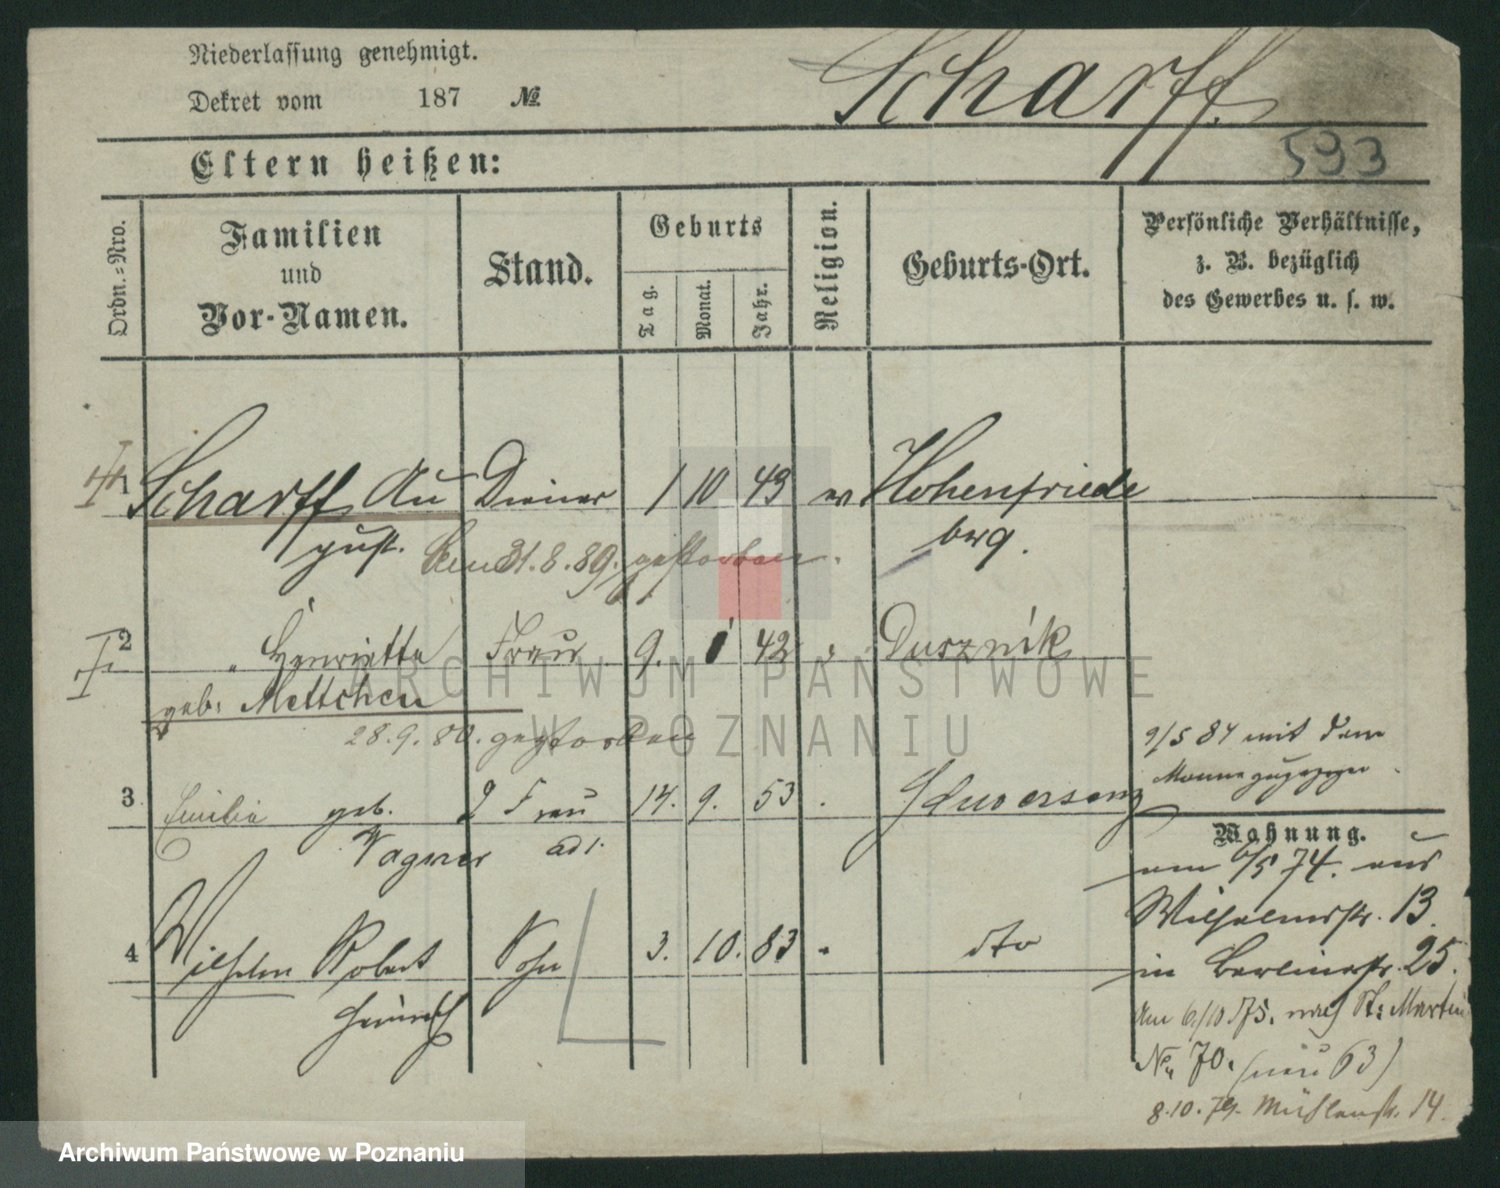 Niederlassung genehmigt.
Dekret vom 187 № Scharff.
593
Eltern heißen:
Ordn.-Nro. Familien und Vor-Namen. Stand. Geburts Tag. Monat. Jahr. Religion. Geburts-Ort. Persönliche Verhältnisse, z. B. bezüglich des Gewerbes u. s. w.
1 Scharff Au Diener 1 10 43 ev Hohenfriede
gust. berg.
den 31.8.89. gestorben.
2 " Henriette Frau 9. 1 42 " Dusznik
geb: Mettchen
28.9.80. gestorben
9/5 84 mit dem
Manne zugezogen
3 Emilie geb. 2 Frau 14. 9. 53 Schwersenz
Wagner ad 1.
Wohnung.
am 6/5 74. aus
Wilhelmstr. 13.
4 Wilhelm Robert Sohn 3. 10. 83 " dto
Heinrich
in Berlinerstr. 25.
Am 6/10 75. nach St: Martin
No 70. (neu 63)
8.10.79. Mühlenstr. 14.
ARCHIWUM PAŃSTWOWE
W POZNANIU
Archiwum Państwowe w Poznaniu